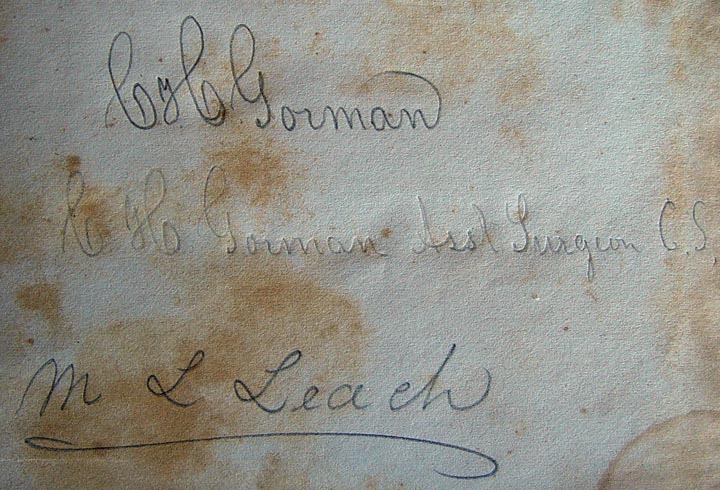 C H Gorman
C H Gorman Asst Surgeon C.S.
M L Leach